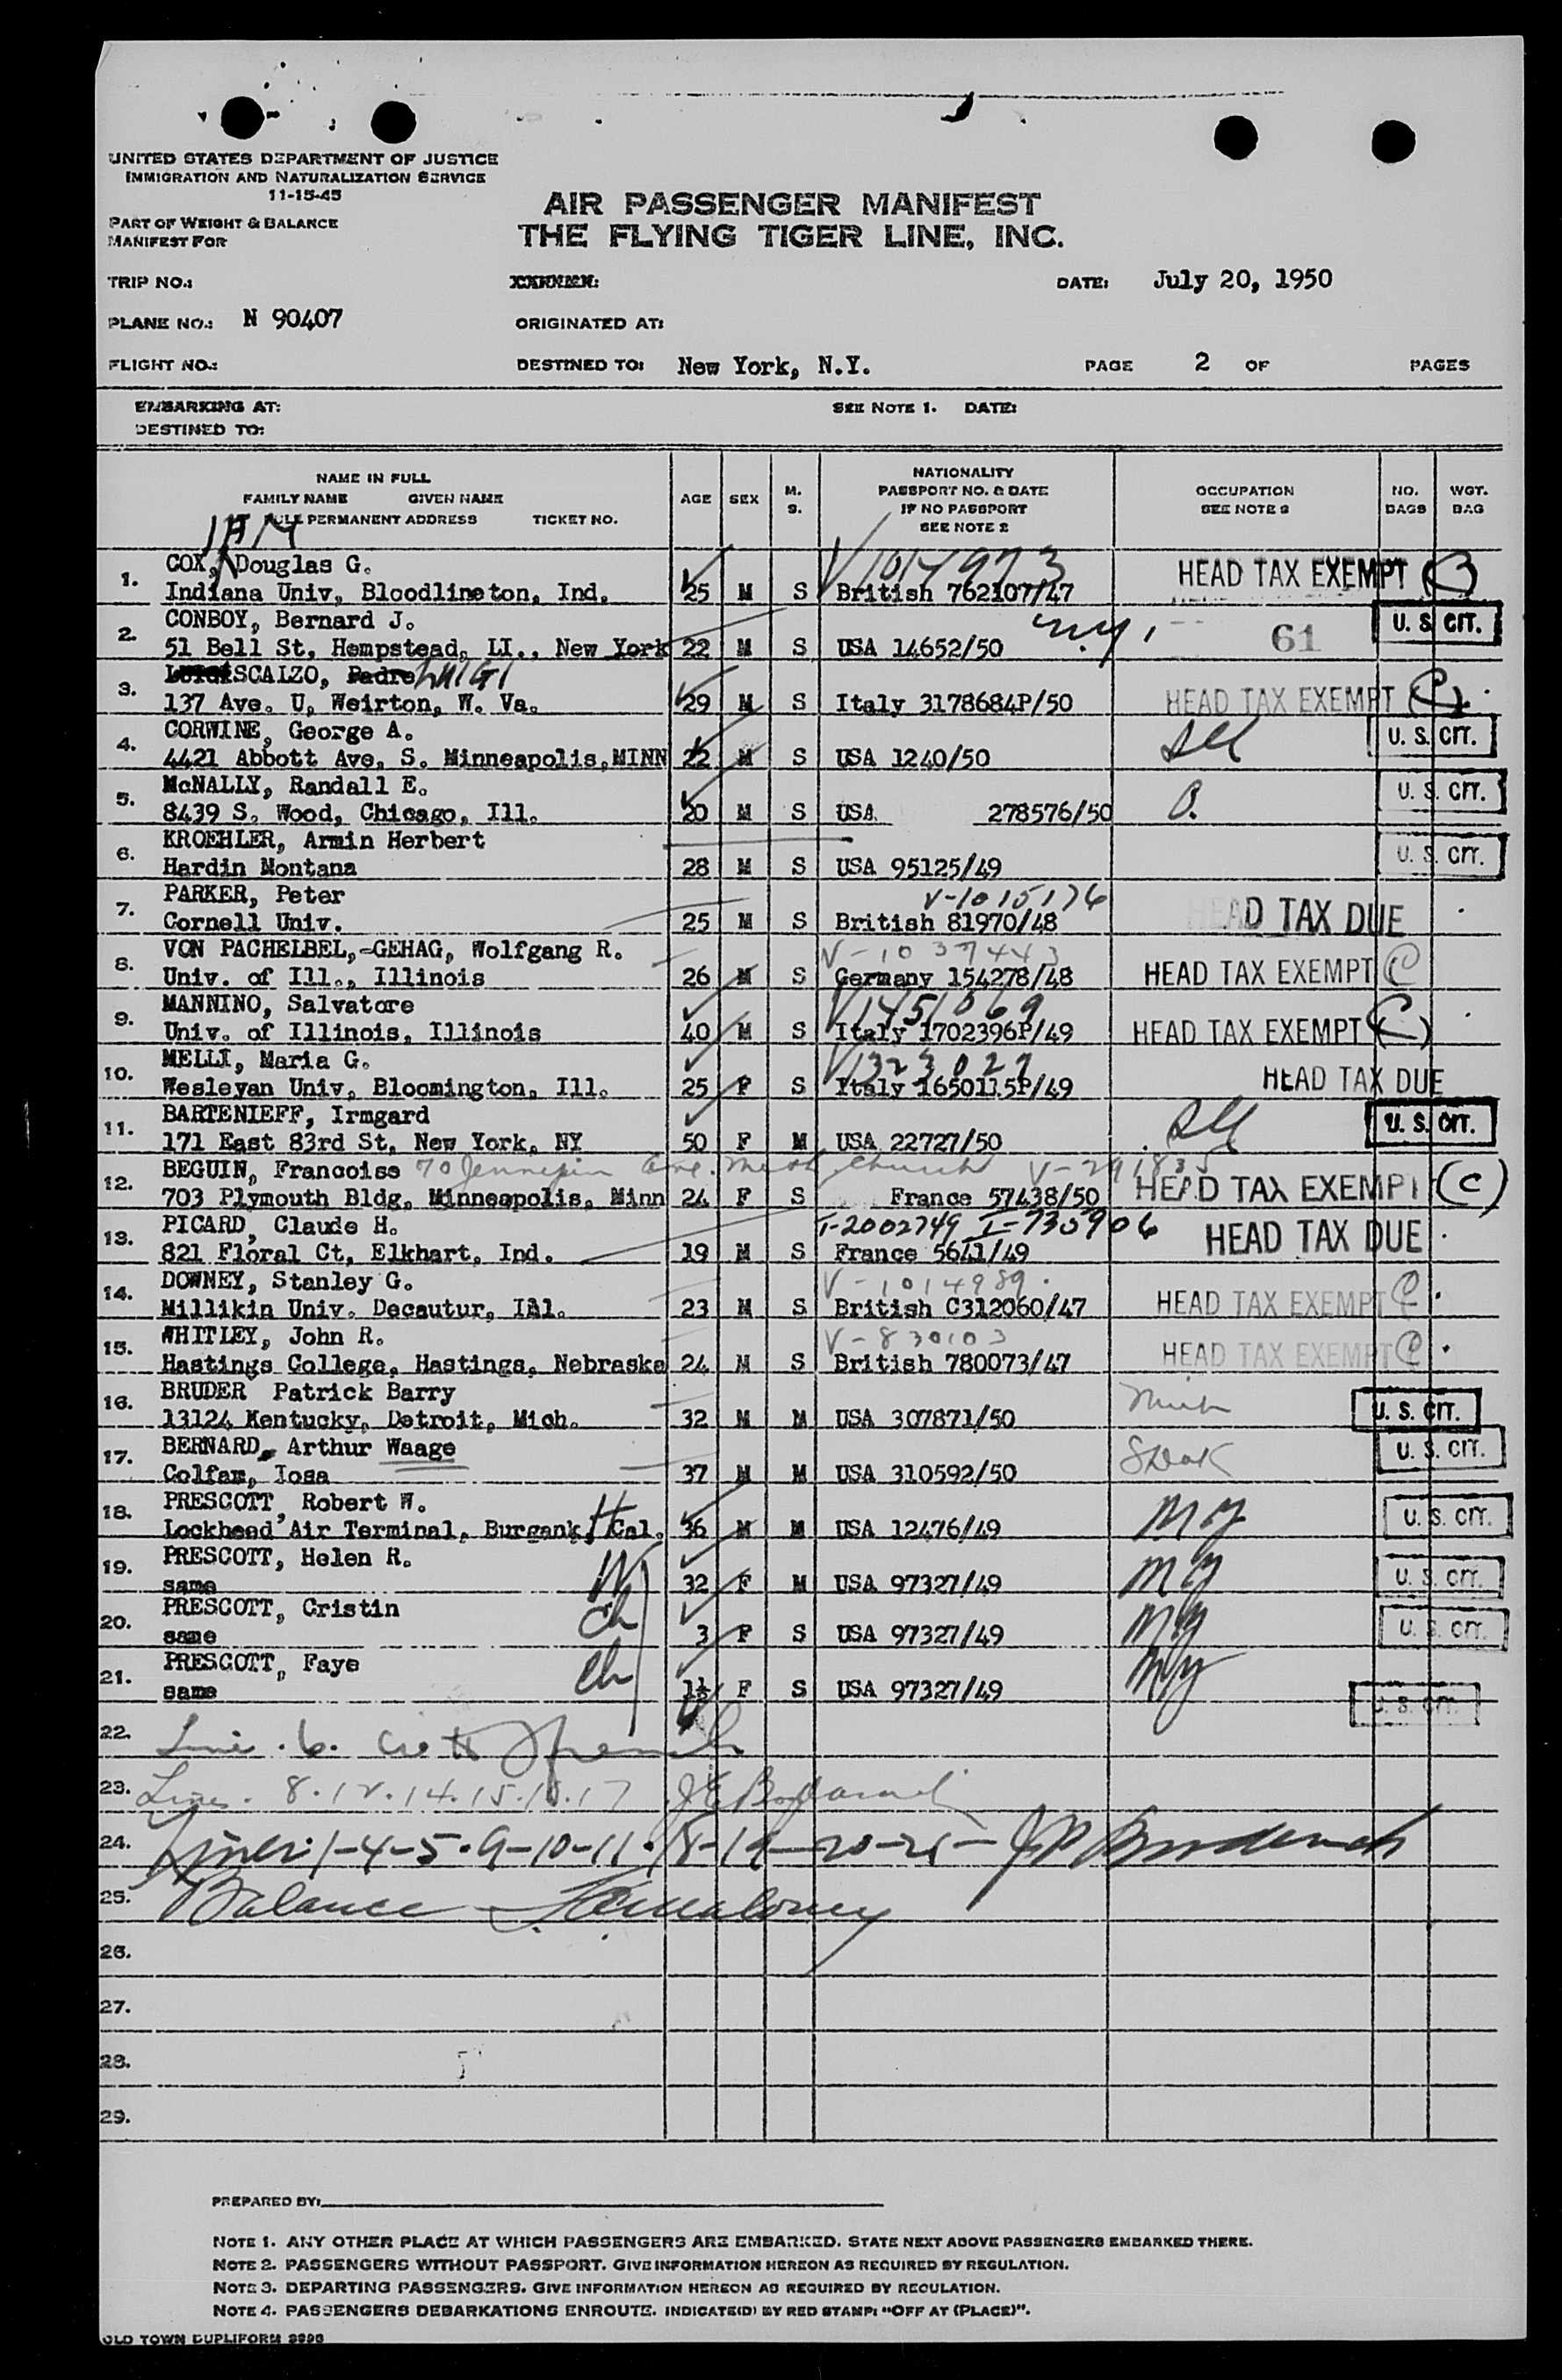 UNITED STATES DEPARTMENT OF JUSTICE
IMMIGRATION AND NATURALIZATION SERVICE
11-15-45
PART OF WEIGHT & BALANCE
MANIFEST FOR
AIR PASSENGER MANIFEST
THE FLYING TIGER LINE, INC.
TRIP NO.:
DATE: July 20, 1950
PLANE NO.: N 90407
ORIGINATED AT:
FLIGHT NO.:
DESTINED TO: New York, N.Y.
PAGE 2 OF PAGES
EMBARKING AT: SEE NOTE 1. DATE:
DESTINED TO:
NAME IN FULL
FAMILY NAME GIVEN NAME
FULL PERMANENT ADDRESS TICKET NO.
AGE SEX M. S.
NATIONALITY
PASSPORT NO. & DATE
IF NO PASSPORT
SEE NOTE 2
OCCUPATION
SEE NOTE 3
NO. BAGS
WGT. BAG
IAN
V1014973
1. COX, Douglas G. HEAD TAX EXEMPT (C)
Indiana Univ, Bloodlineton, Ind. 25 M S British 762107/47
2. CONBOY, Bernard J. N.Y. 61 U. S. CIT.
51 Bell St, Hempstead, LI., New York 22 M S USA 14652/50
3. SCALZO, Padre LUIGI
137 Ave. U, Weirton, W. Va. 29 M S Italy 3178684P/50 HEAD TAX EXEMPT (C)
4. CORWINE, George A. U. S. CIT.
4421 Abbott Ave, S. Minneapolis, MINN 22 M S USA 1240/50
5. McNALLY, Randall E. U. S. CIT.
8439 S. Wood, Chicago, Ill. 20 M S USA 278576/50
6. KROEHLER, Armin Herbert U. S. CIT.
Hardin Montana 28 M S USA 95125/49
7. PARKER, Peter V-1015176 HEAD TAX DUE
Cornell Univ. 25 M S British 81970/48
8. VON PACHELBEL,-GEHAG, Wolfgang R. V-1037443
Univ. of Ill., Illinois 26 M S Germany 154278/48 HEAD TAX EXEMPT (C)
9. MANNINO, Salvatore V1451069
Univ. of Illinois, Illinois 40 M S Italy 1702396P/49 HEAD TAX EXEMPT (C)
10. MELLI, Maria G. V1323027 HEAD TAX DUE
Wesleyan Univ, Bloomington, Ill. 25 F S Italy 1650115P/49
11. BARTENIEFF, Irmgard U. S. CIT.
171 East 83rd St, New York, NY 50 F M USA 22727/50
12. BEGUIN, Francoise 70 Ave. Meth Church V-291835
703 Plymouth Bldg, Minneapolis, Minn 24 F S France 57438/50 HEAD TAX EXEMPT (C)
13. PICARD, Claude H. T-2002749 I-735906 HEAD TAX DUE
821 Floral Ct, Elkhart, Ind. 19 M S France 5641/49
14. DOWNEY, Stanley G. V-1014989
Millikin Univ. Decautur, Ill. 23 M S British C312060/47 HEAD TAX EXEMPT C
15. WHITLEY, John R. V-830103
Hastings College, Hastings, Nebraska 24 M S British 780073/47 HEAD TAX EXEMPT C
16. BRUDER Patrick Barry Mich U. S. CIT.
13124 Kentucky, Detroit, Mich. 32 M M USA 307871/50
17. BERNARD, Arthur Waage S Dak U. S. CIT.
Colfax, Iosa 37 M M USA 310592/50
18. PRESCOTT, Robert W. H U. S. CIT.
Lockheed Air Terminal, Burgank, Cal. 36 M M USA 12476/49
19. PRESCOTT, Helen R. W U. S. CIT.
same 32 F M USA 97327/49
20. PRESCOTT, Cristin Ch U. S. CIT.
same 3 F S USA 97327/49
21. PRESCOTT, Faye Ch U. S. CIT.
same 1½ F S USA 97327/49
22. Line . 6.
23. Lines. 8.12.14.15.16.17
24. Lines: 1-4-5-9-10-11-18-19-20-21-
25. Balance
26.
27.
28.
29.
PREPARED BY:
NOTE 1. ANY OTHER PLACE AT WHICH PASSENGERS ARE EMBARKED. STATE NEXT ABOVE PASSENGERS EMBARKED THERE.
NOTE 2. PASSENGERS WITHOUT PASSPORT. GIVE INFORMATION HEREON AS REQUIRED BY REGULATION.
NOTE 3. DEPARTING PASSENGERS. GIVE INFORMATION HEREON AS REQUIRED BY REGULATION.
NOTE 4. PASSENGERS DEBARKATIONS ENROUTE. INDICATE(D) BY RED STAMP: "OFF AT (PLACE)".
OLD TOWN DUPLIFORM